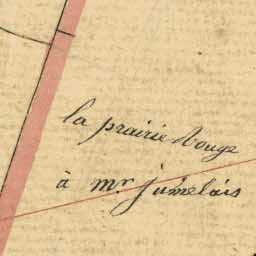 la prairie Rouge
à mr. jumelais